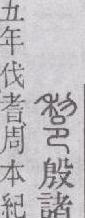 殷諸
五年伐耆周本紀